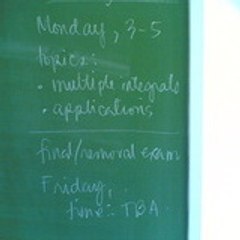 Monday, 3-5
topics:
• multiple integrals
• applications
final/removal exam
Friday,
time: TBA